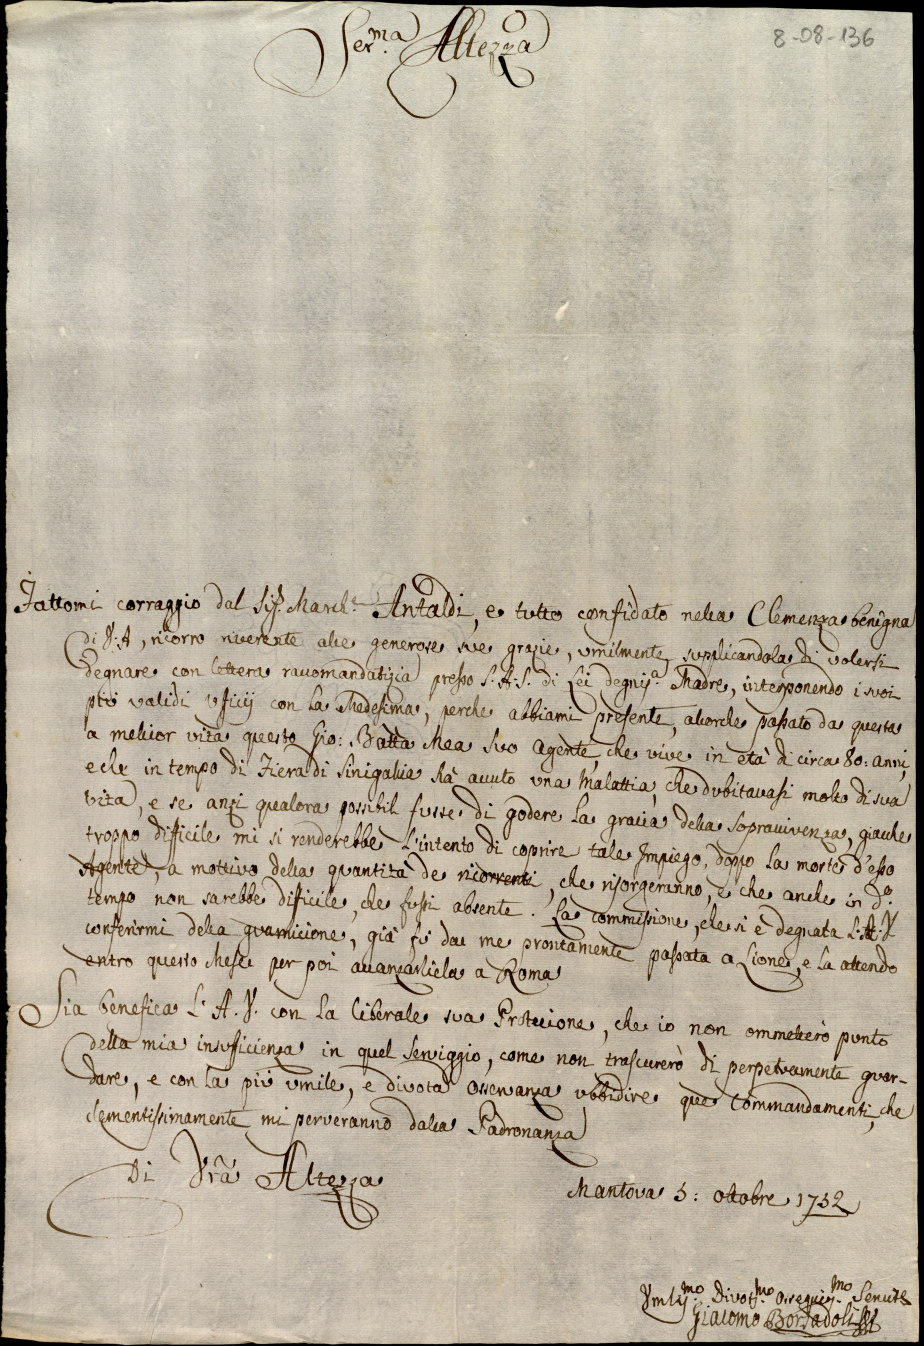 8-08-136
Ser.ma Altezza
Fattomi corraggio dal Sig.r March.e Antaldi, e tutto confidato nella Clemenza benigna
di V. A, ricorro riverente alle generose sue grazie, umilmente supplicandola di volersi
degnare con lettera racomandatizia presso S. A. S. di Lei degnis.a Madre, interponendo i suoi
più validi ufficij con la Medesima, perche abbiami presente, allorche passato da questa
a melior vita questo Gio: Batta Mea suo Agente, che vive in età di circa 80: anni,
e che in tempo di Fiera di Sinigalia hà auuto una Malattia, che dubitavasi molto di sua
vita, e se anzi qualora possibil fusse di godere la gracia della sopravivenza, giacche
troppo difficile mi si renderebbe l'intento di coprire tale Impiego, doppo la morte d'esso
Agente, a mottivo della quantità de ricorrenti, che risorgeranno, e che anche in d.o
tempo non sarebbe difficile, che fussi absente. La commissione, che si è degnata l'A. V.
conferirmi della guarnicione, già fù da me prontamente passata a Lione, e la attendo
entro questo Mese per poi auanzarliela a Roma
Sia benefica l'A. V. con la liberale sua Protecione, che io non ommetterò punto
della mia insufficienza in quel serviggio, come non trascurerò di perpetuamente guar-
dare, e con la più umile, e divota osservanza ubbidire que commandamenti, che
clementissimamente mi perveranno dalla Padronanza
Di Vrã Altezza
Mantova 5: ottobre 1752
Umilis.mo Divot.mo Ossequis.mo Servite
Giacomo Bordadoli